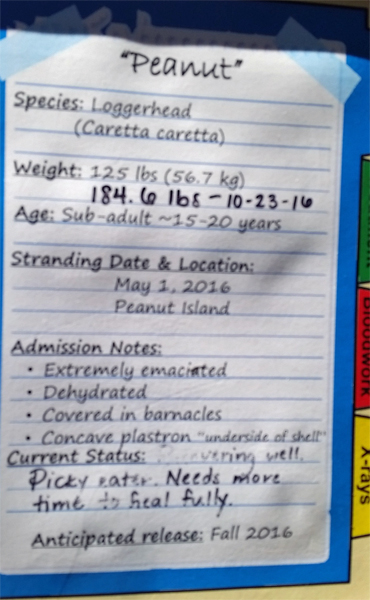 "Peanut"
Species: Loggerhead
(Caretta caretta)
Weight: 125 lbs (56.7 kg)
184.6 lbs - 10-23-16
Age: Sub-adult ~15-20 years
Stranding Date & Location:
May 1, 2016
Peanut Island
Admission Notes:
• Extremely emaciated
• Dehydrated
• Covered in barnacles
• Concave plastron "underside of shell"
Current Status: Recovering well.
Picky eater. Needs more
time to heal fully.
Anticipated release: Fall 2016
Bloodwork
X-rays